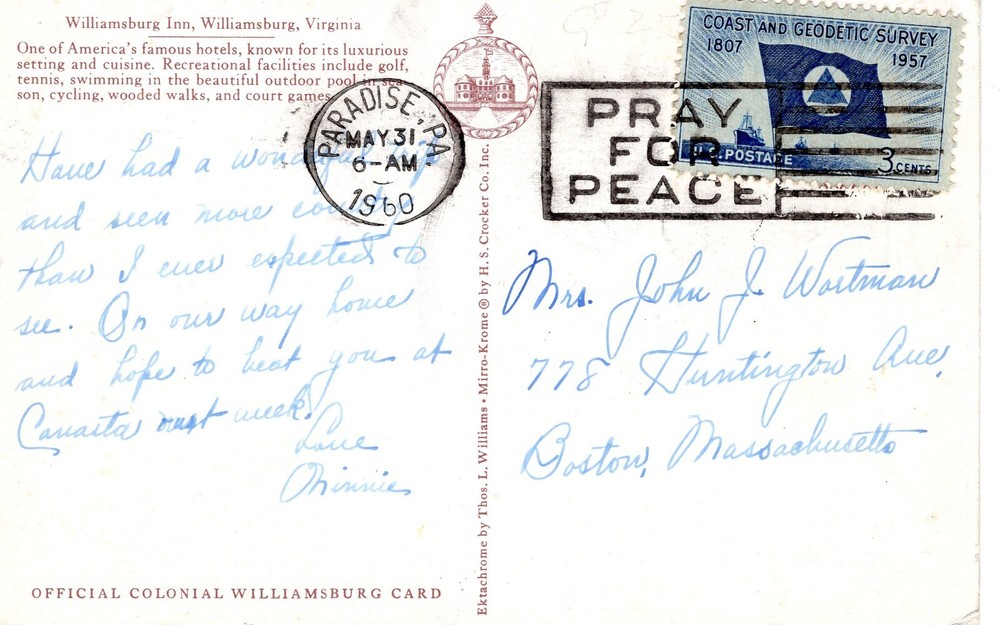 Williamsburg Inn, Williamsburg, Virginia
One of America's famous hotels, known for its luxurious
setting and cuisine. Recreational facilities include golf,
tennis, swimming in the beautiful outdoor pool in sea-
son, cycling, wooded walks, and court games.
PARADISE, PA.
MAY 31
6-AM
1960
PRAY
FOR
PEACE
COAST AND GEODETIC SURVEY
1807
1957
U.S. POSTAGE
3 CENTS
Have had a wonderful trip
and seen more country
than I ever expected to
see. On our way home
and hope to beat you at
Canasta next week.
Love
Minnie
Ektachrome by Thos. L. Williams • Mirro-Krome ® by H. S. Crocker Co. Inc.
Mrs. John J. Wortman
778 Huntington Ave,
Boston, Massachusetts
OFFICIAL COLONIAL WILLIAMSBURG CARD